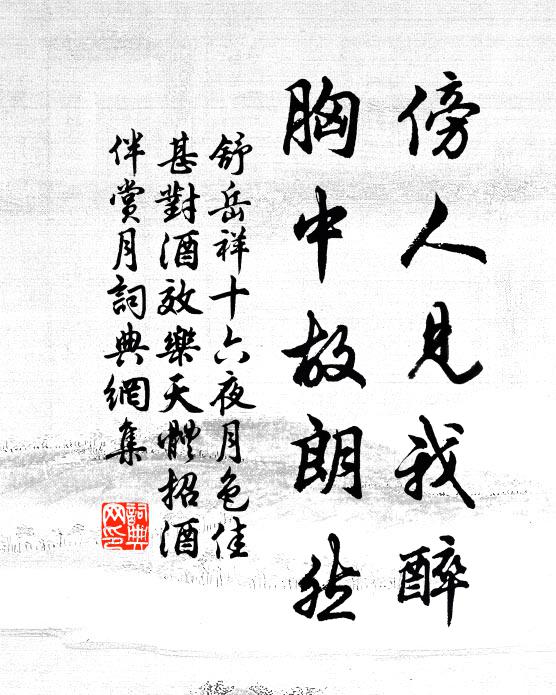 傍人見我醉
胸中故朗然
舒岳祥十六夜月色佳
甚對酒效樂天體招酒
伴賞月詞典網集
詞典
网印